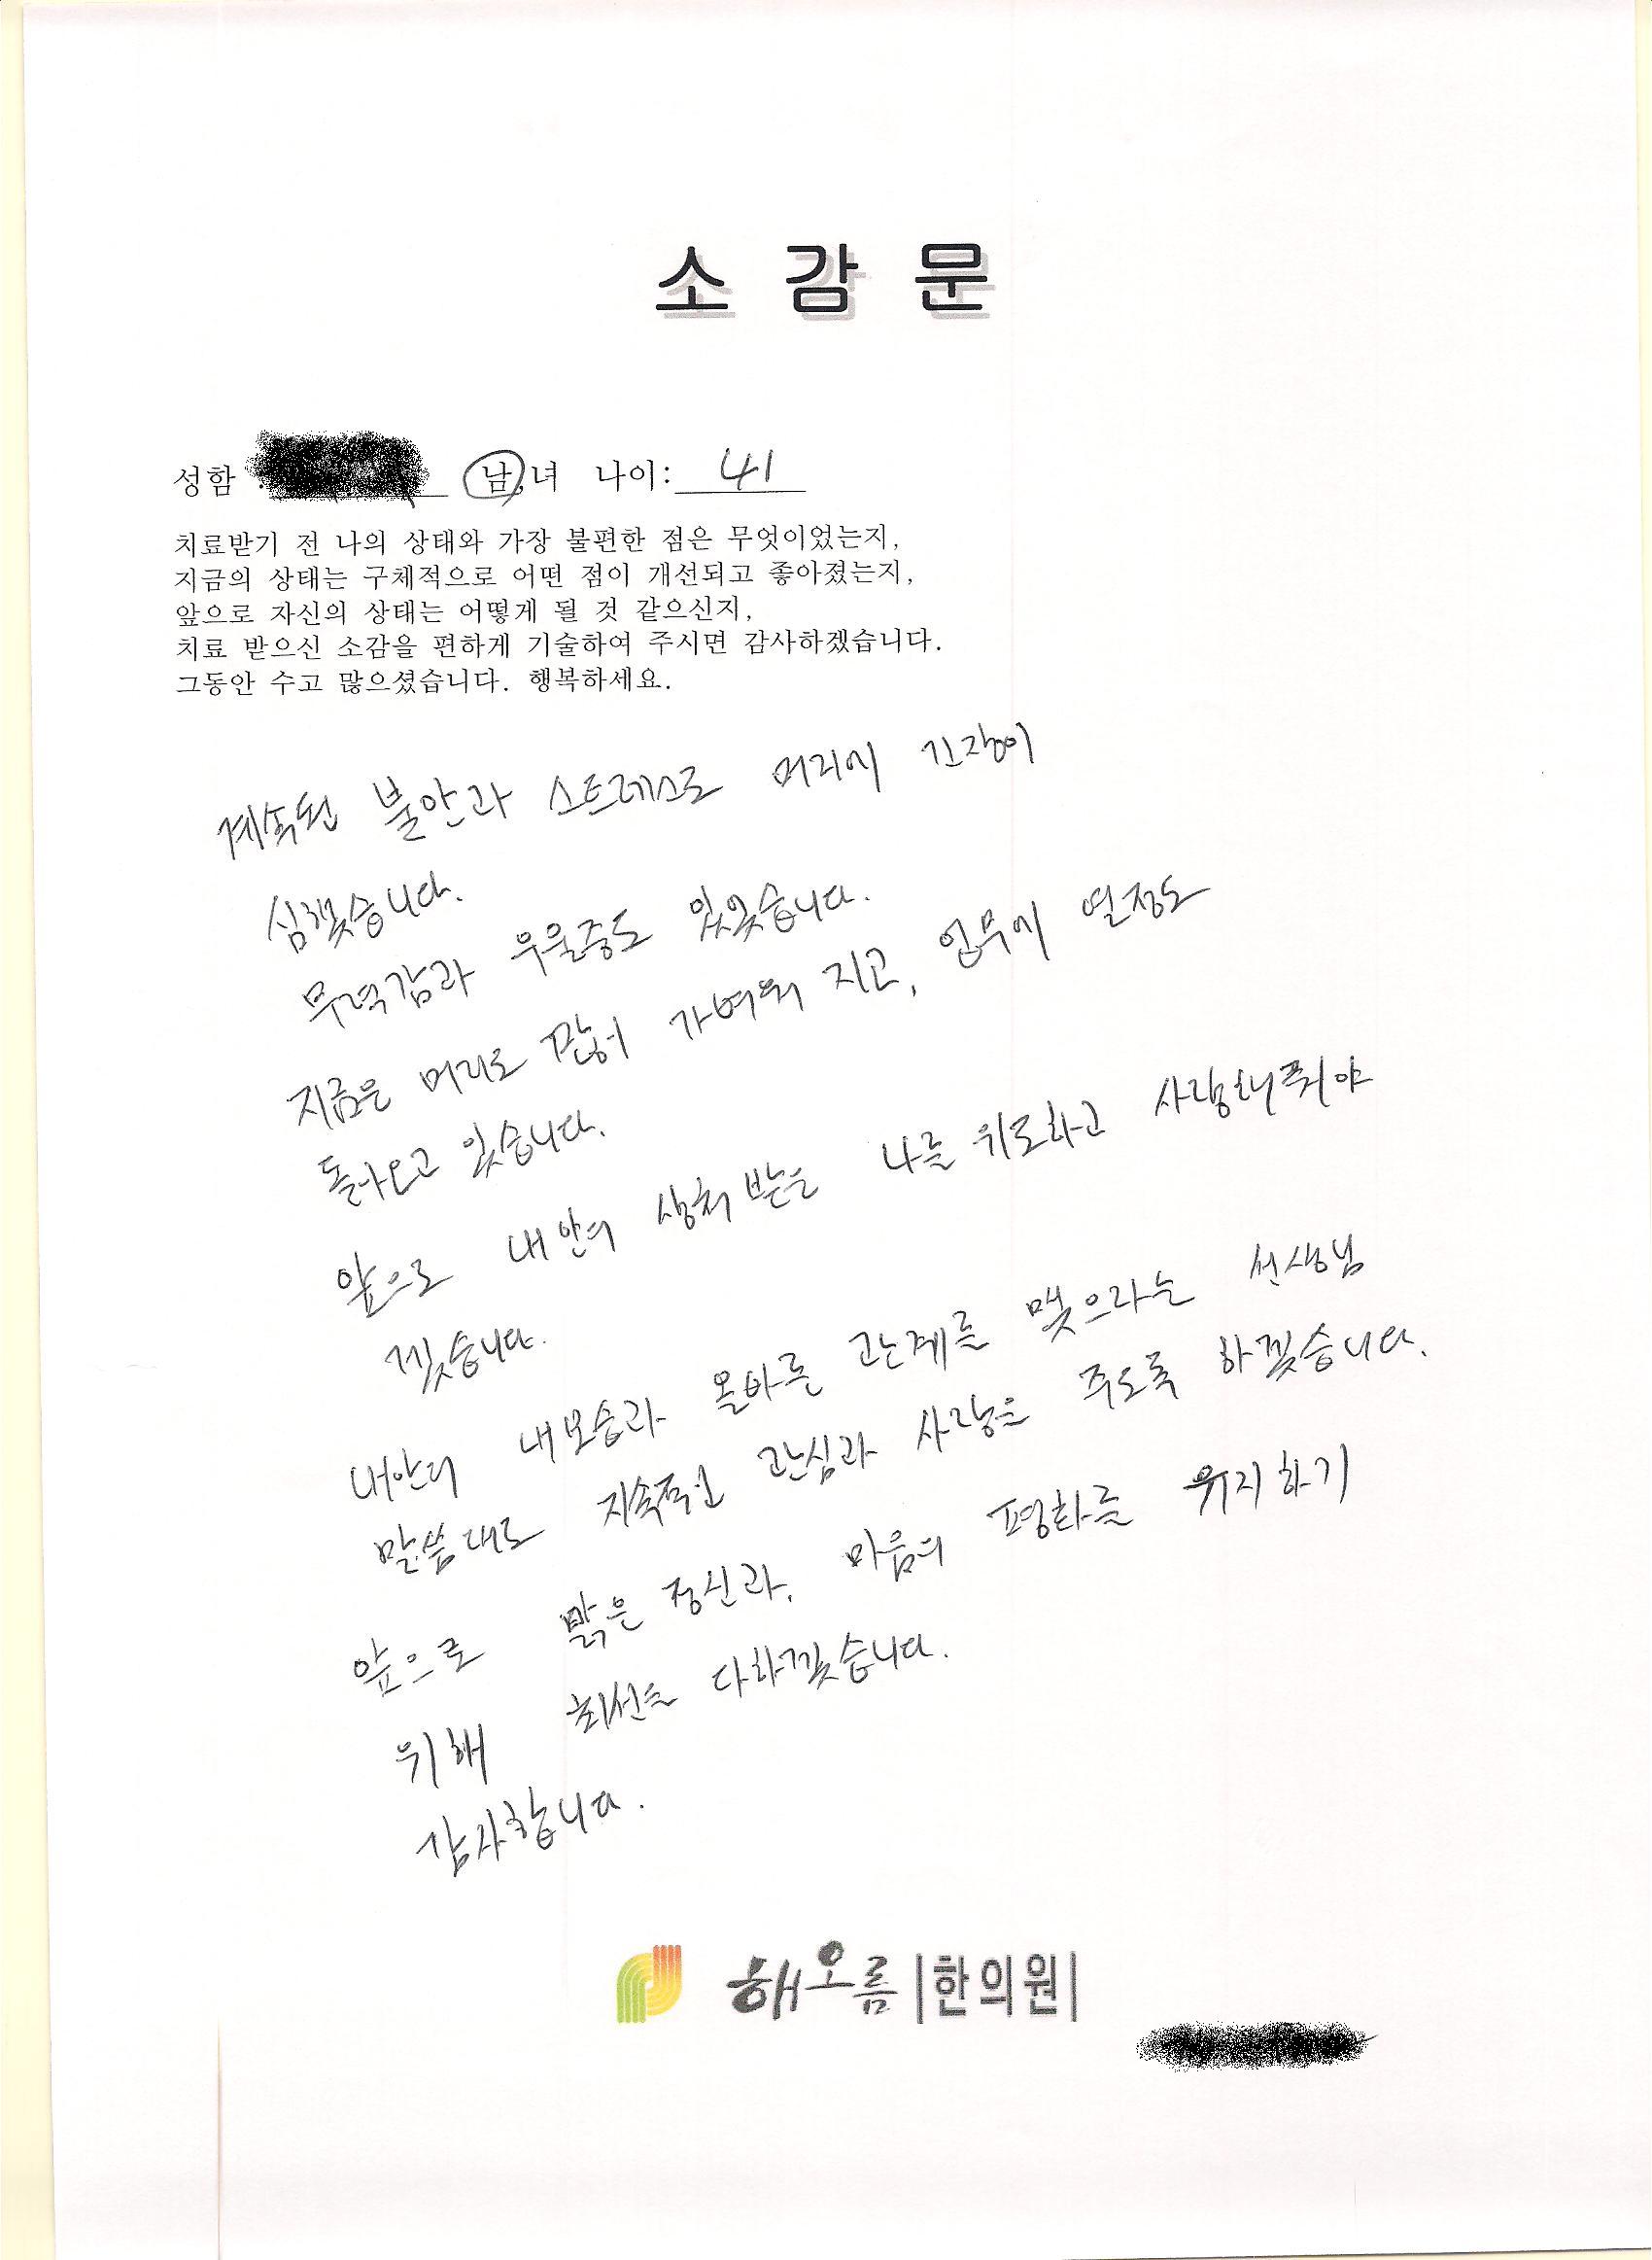 소 감 문
성함 : 남,녀 나이: 41
치료받기 전 나의 상태와 가장 불편한 점은 무엇이었는지,
지금의 상태는 구체적으로 어떤 점이 개선되고 좋아졌는지,
앞으로 자신의 상태는 어떻게 될 것 같으신지,
치료 받으신 소감을 편하게 기술하여 주시면 감사하겠습니다.
그동안 수고 많으셨습니다. 행복하세요.
계속된 불안과 스트레스로 머리에 긴장이
심했습니다.
무력감과 우울증도 있었습니다.
지금은 머리도 많이 가벼워 지고, 업무에 열정도
돌아오고 있습니다.
앞으로 내안의 상처받은 나를 위로하고 사랑해줘야
겠습니다.
내안의 내모습과 올바른 관계를 맺으라는 선생님
말씀대로 지속적인 관심과 사랑을 주도록 하겠습니다.
앞으로 맑은 정신과, 마음의 평화를 유지하기
위해 최선을 다하겠습니다.
감사합니다.
해오름|한의원|